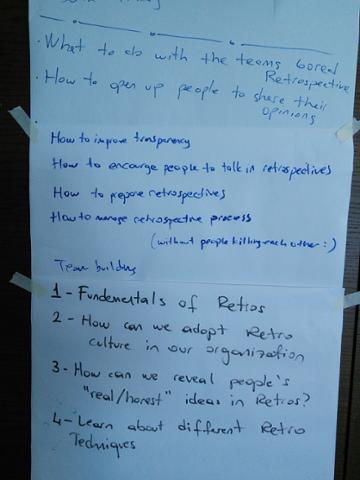 • What to do with the teams bored
Retrospective
• How to open up people to share their
opinions
How to improve transparency
How to encourge people to talk in retrospectives
How to prepare retrospectives
How to manage retrospective process
(without people killing each other :)
Team building
1 - Fundamentals of Retros
2 - How can we adopt Retro
culture in our organization
3 - How can we reveal people's
"real/honest" ideas in Retros?
4 - Learn about different Retro
Techniques